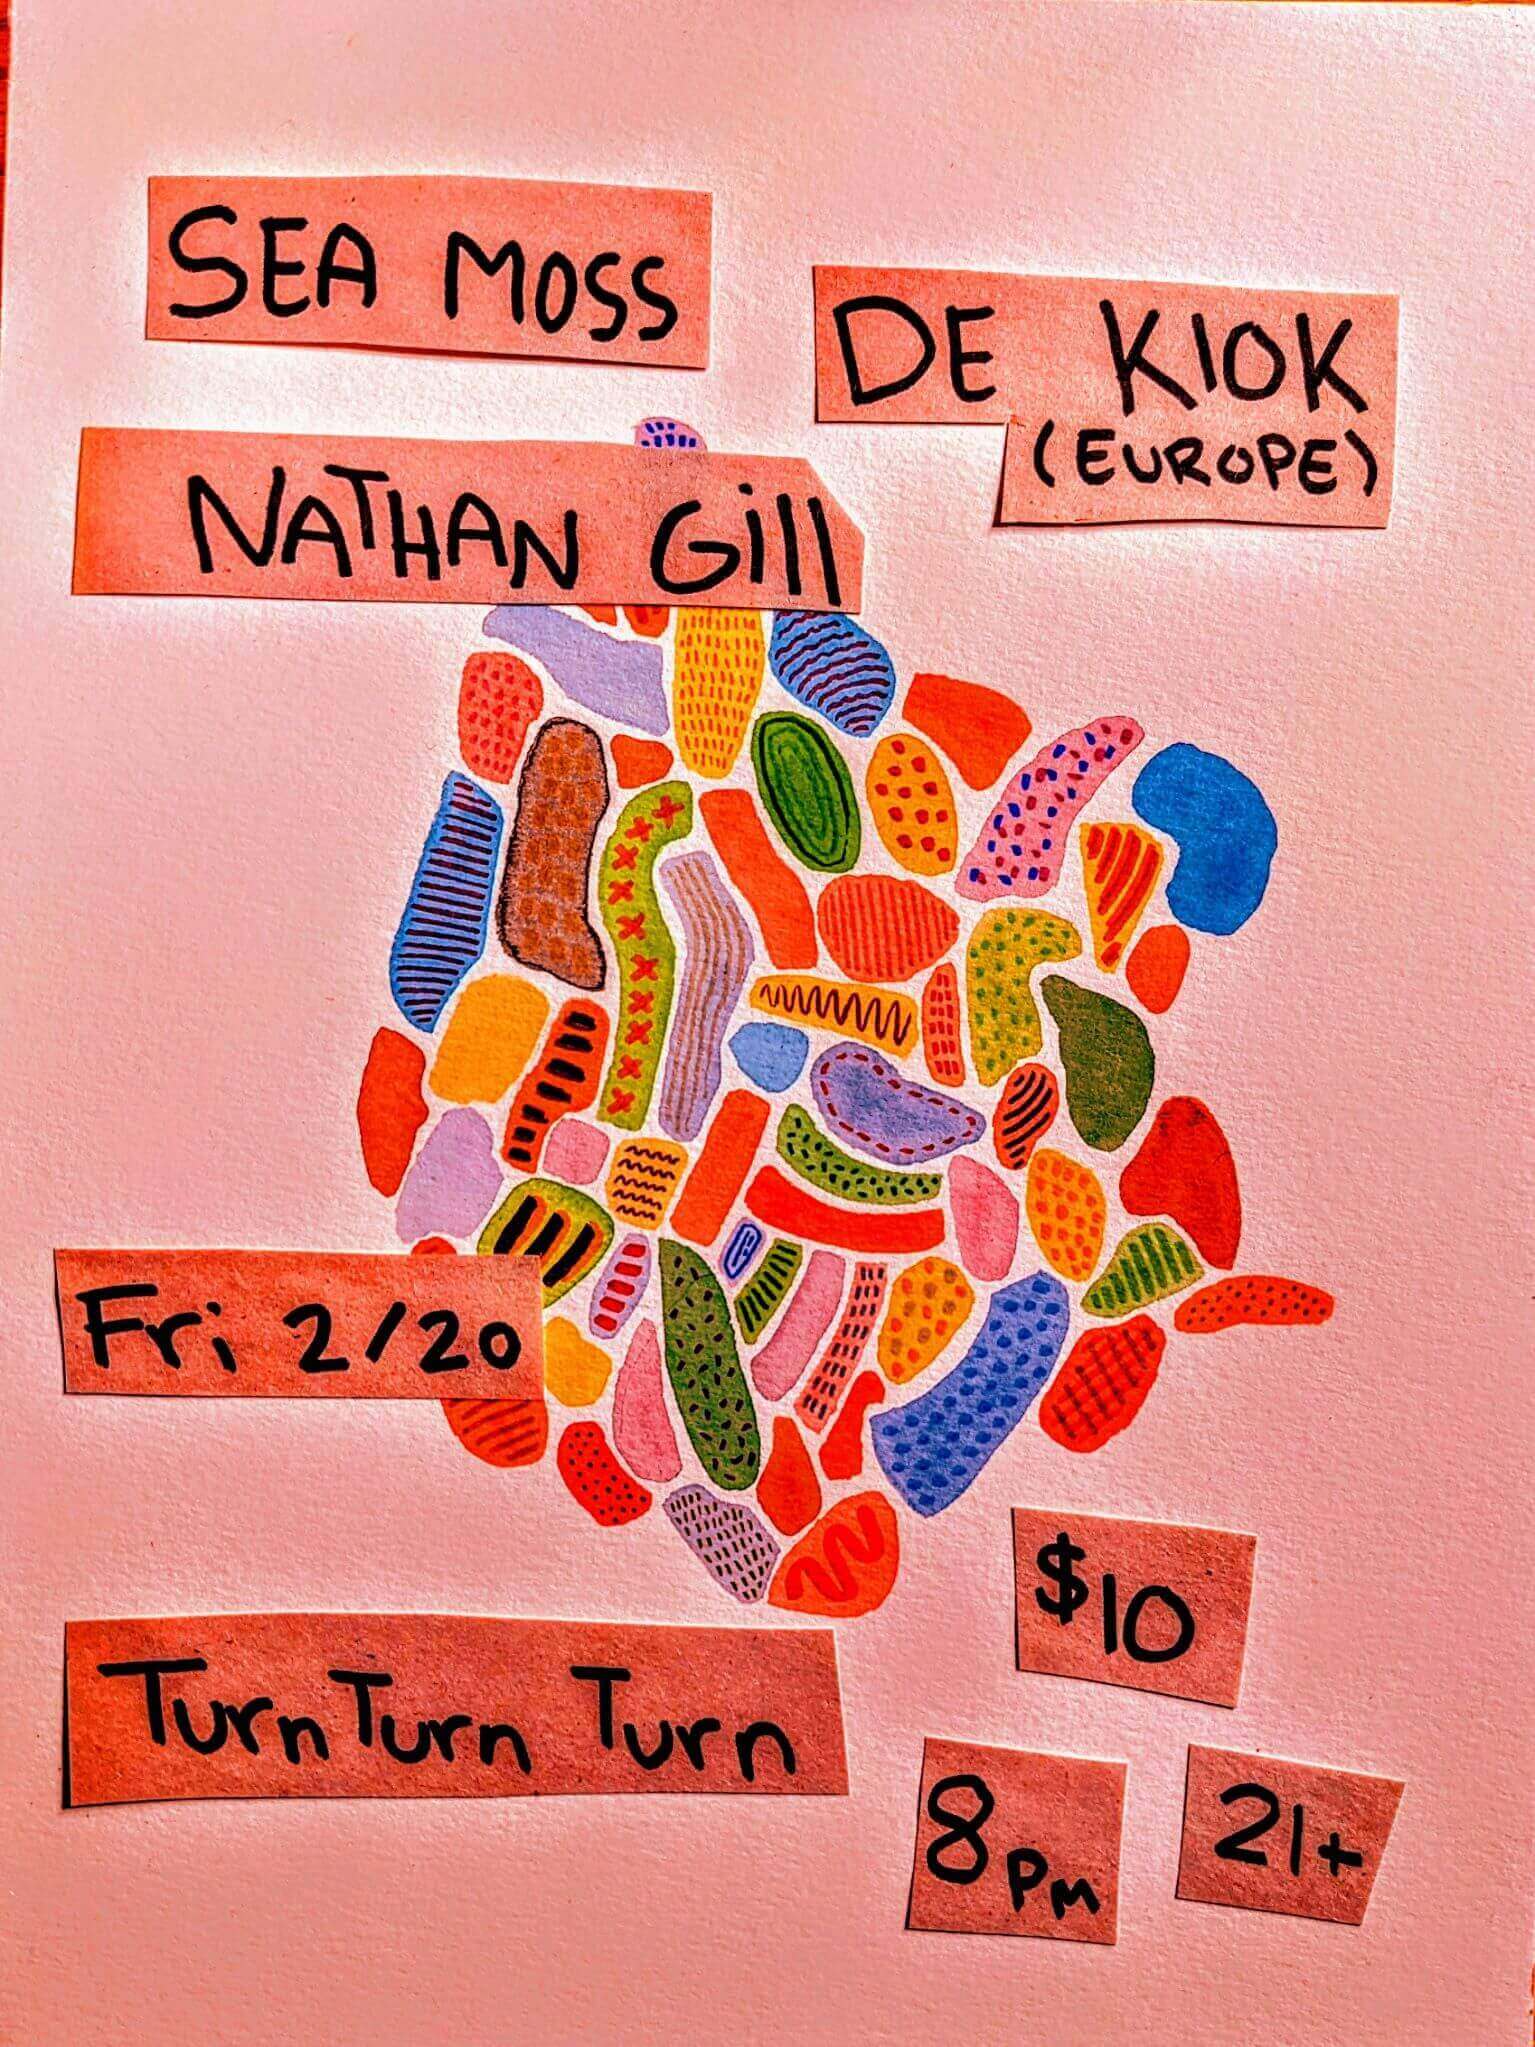 SEA MOSS
DE KIOK
(EUROPE)
NATHAN Gill
Fri 2/20
Turn Turn Turn
$10
8pm
21+